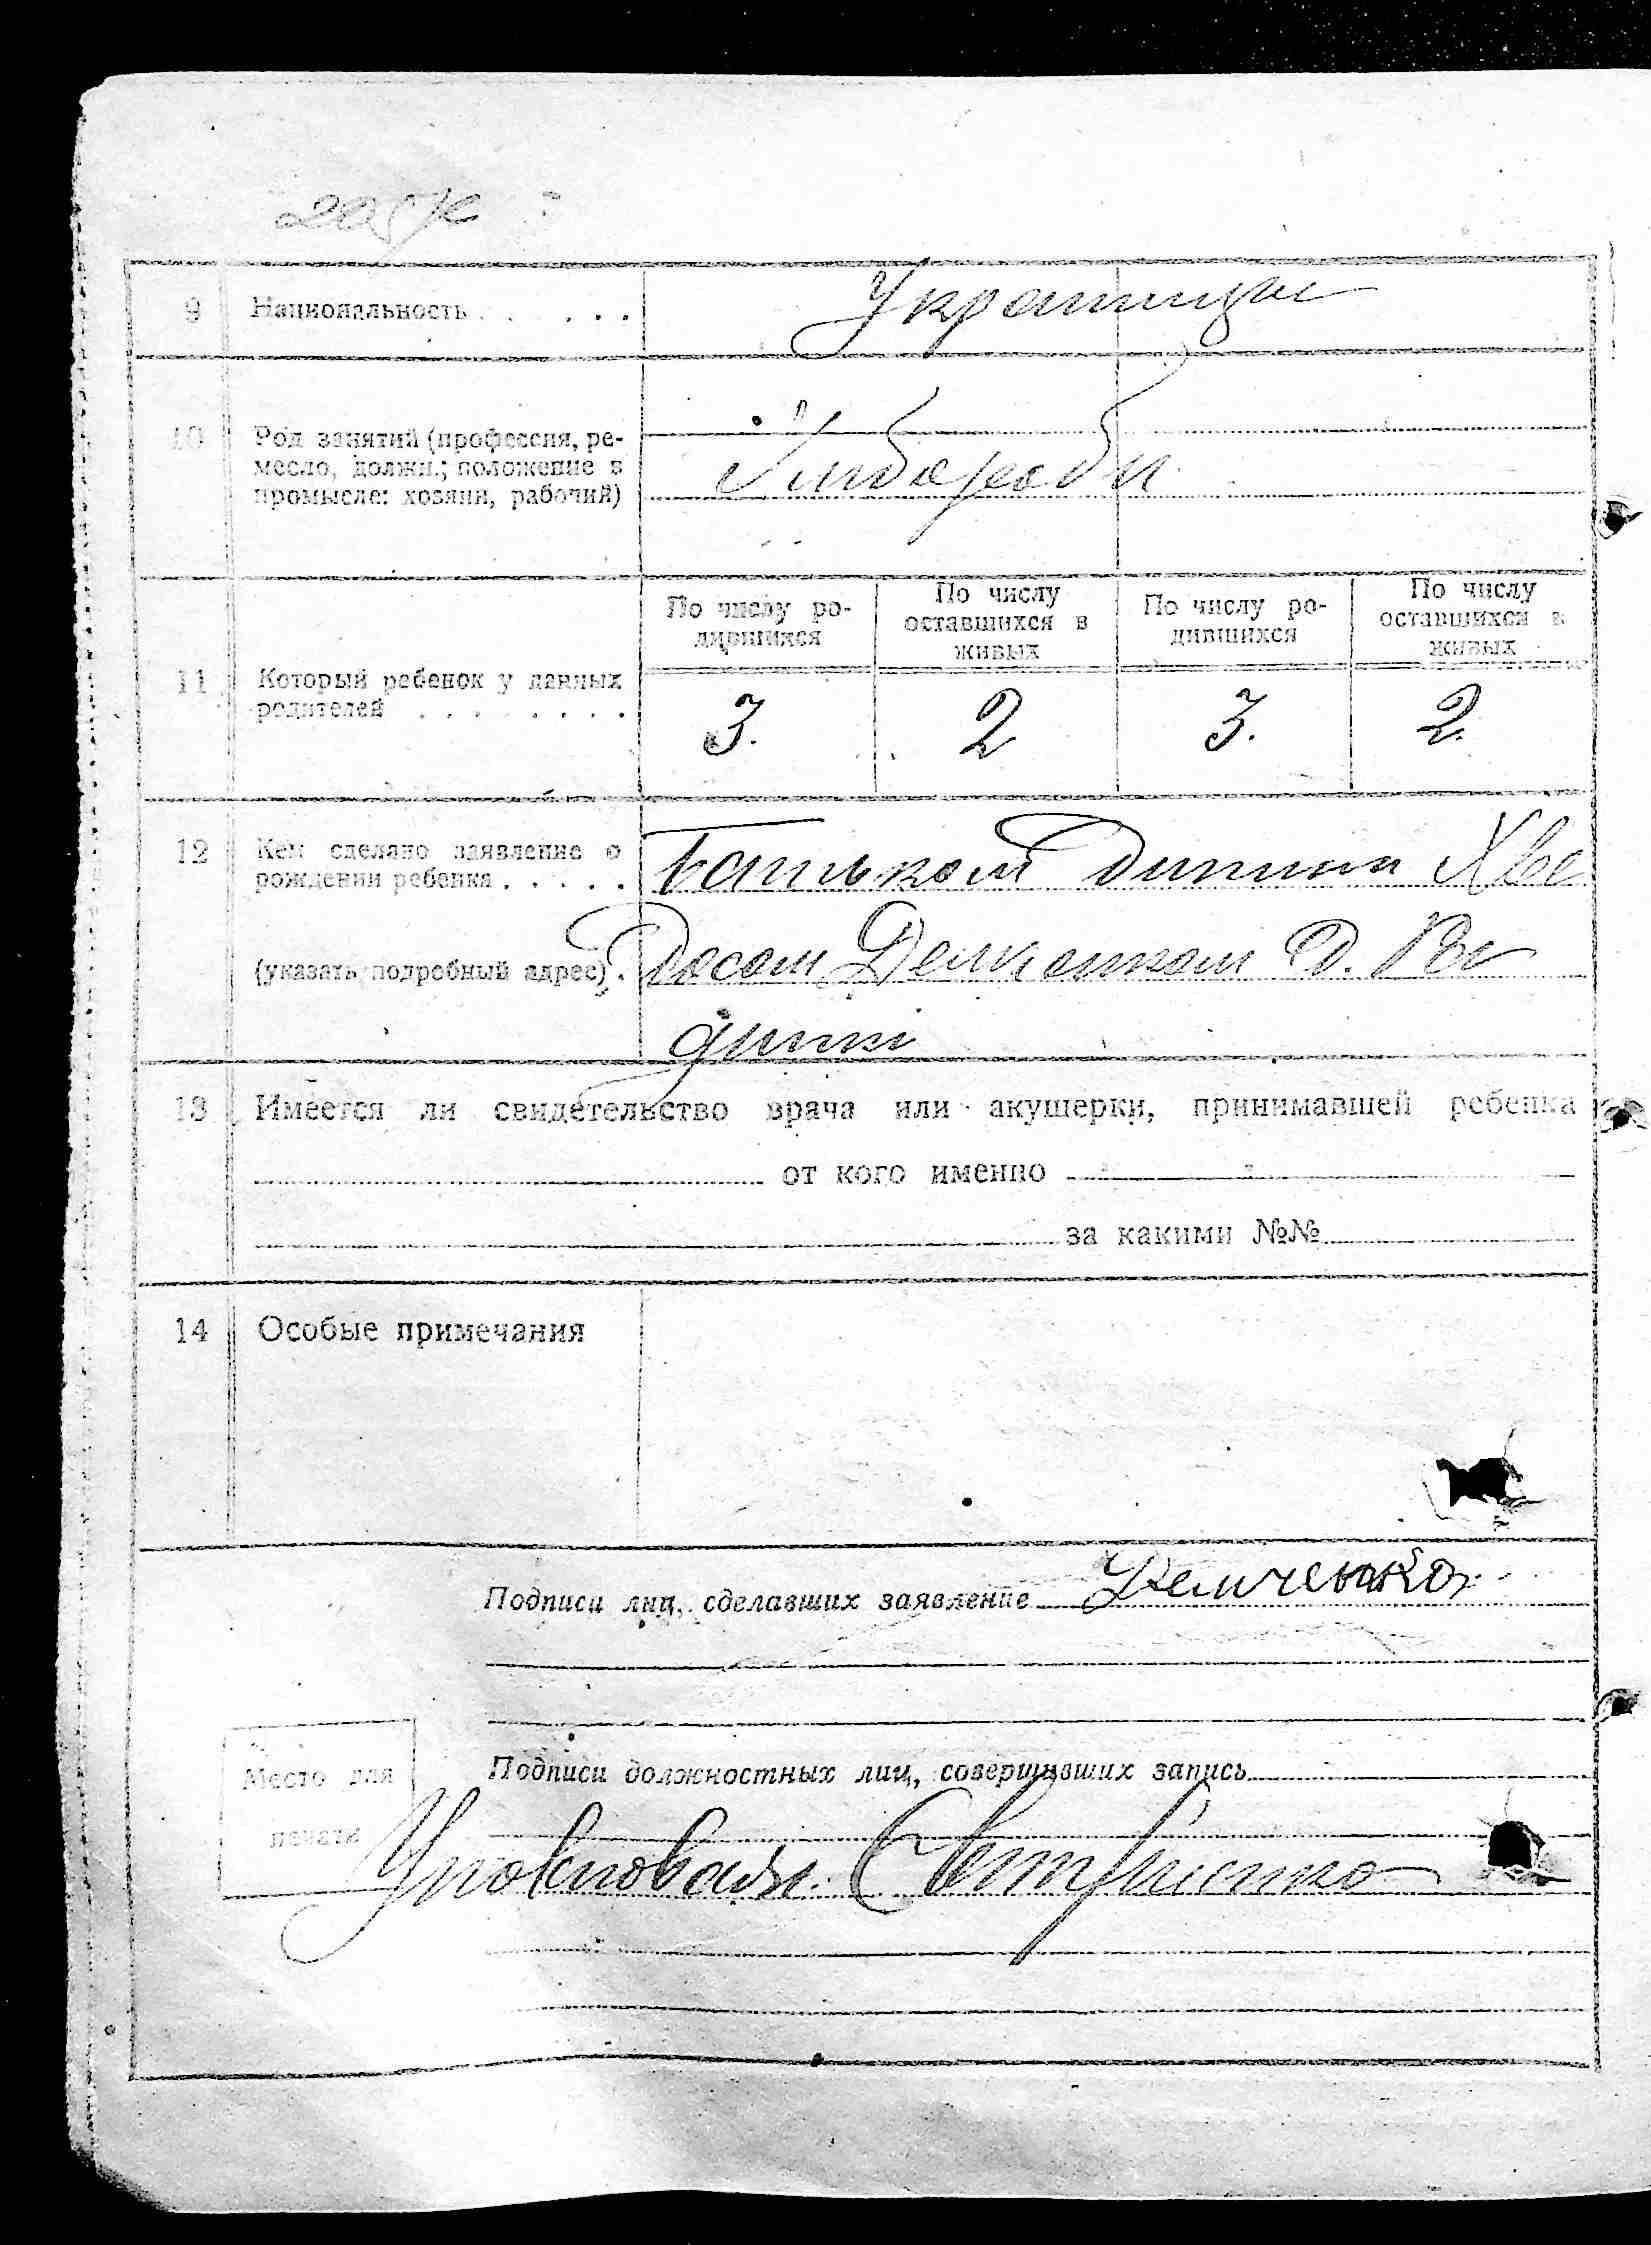 9 Национальность . . . . . . Украинцы
10 Род занятий (профессия, ре-
месло, должн.; положение в
промысле: хозяин, рабочий)
Хлібороби
По числу ро-
дившихся
По числу
оставшихся в
живых
По числу ро-
дившихся
По числу
оставшихся в
живых
11 Который ребенок у данных
родителей . . . . . . . .
3. 2 3. 2.
12 Кем сделано заявление о
рождении ребенка . . . . .
Батьком дитини Хве
(указать подробный адрес) .
досом Демченком
13 Имеется ли свидетельство врача или акушерки, принимавшей ребенка
от кого именно
за какими №№
14 Особые примечания
Подписи лиц, сделавших заявление Демченко
Подписи должностных лиц, совершивших запись
Место для
печати